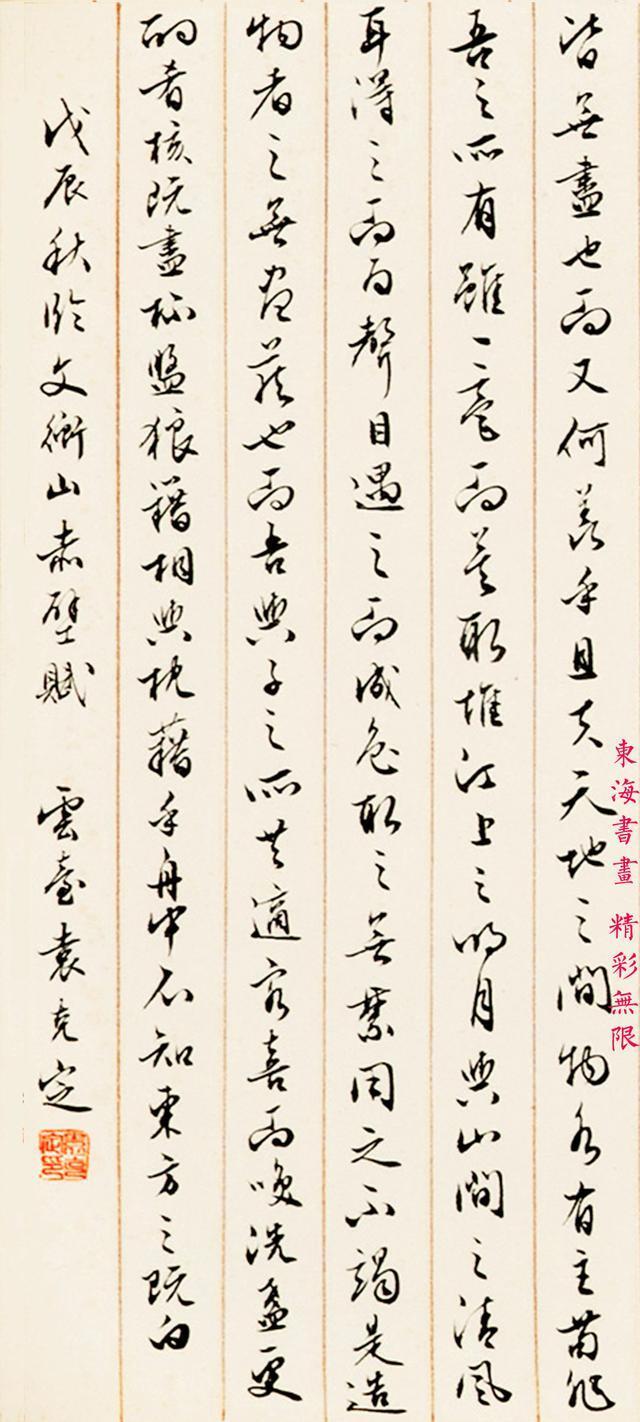 皆無盡也而又何羨乎且夫天地之間物各有主苟非
吾之所有雖一毫而莫取惟江上之明月與山間之清風
耳得之而為聲目遇之而成色取之無禁用之不竭是造
物者之無盡藏也而吾與子之所共適客喜而笑洗盞更
酌肴核既盡杯盤狼籍相與枕藉乎舟中不知東方之既白
戊辰秋臨文衡山赤壁賦 雲臺袁克定
東海書畫 精彩無限